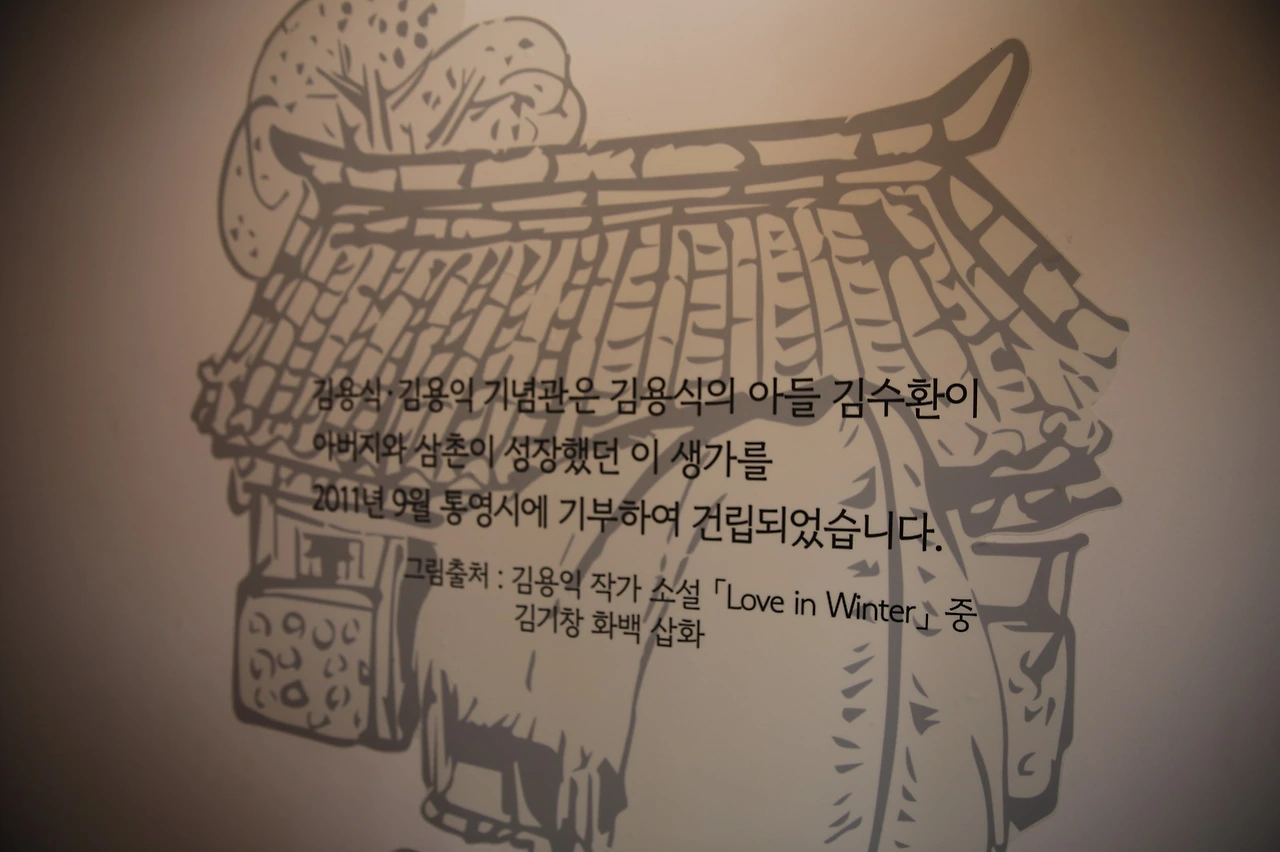 김용식·김용익 기념관은 김용식의 아들 김수환이
아버지와 삼촌이 성장했던 이 생가를
2011년 9월 통영시에 기부하여 건립되었습니다.
그림출처 : 김용익 작가 소설 「Love in Winter」 중
김기창 화백 삽화